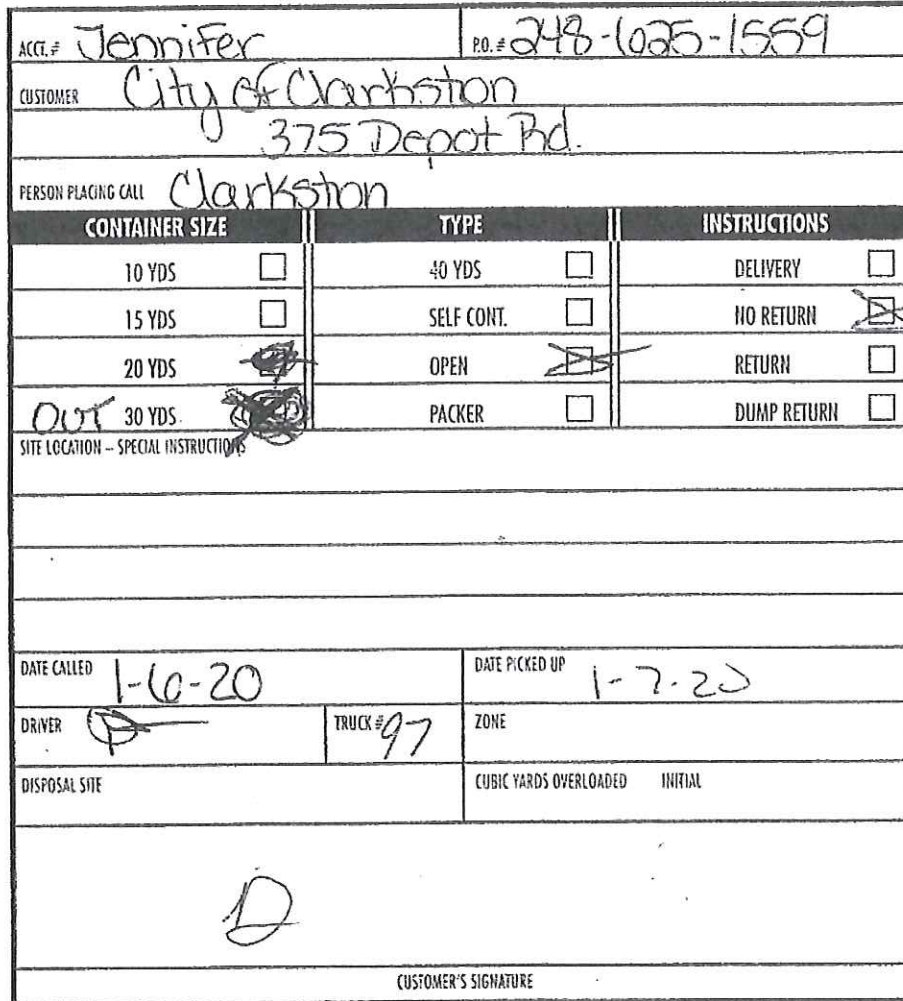 ACCT. # Jennifer P.O. # 248-625-1559
CUSTOMER City of Clarkston
375 Depot Rd.
PERSON PLACING CALL Clarkston
CONTAINER SIZE TYPE INSTRUCTIONS
10 YDS 40 YDS DELIVERY
15 YDS SELF CONT. NO RETURN
20 YDS OPEN RETURN
OUT 30 YDS. PACKER DUMP RETURN
SITE LOCATION – SPECIAL INSTRUCTIONS
DATE CALLED 1-6-20 DATE PICKED UP 1-7-20
DRIVER TRUCK # 97 ZONE
DISPOSAL SITE CUBIC YARDS OVERLOADED INITIAL
D
CUSTOMER'S SIGNATURE